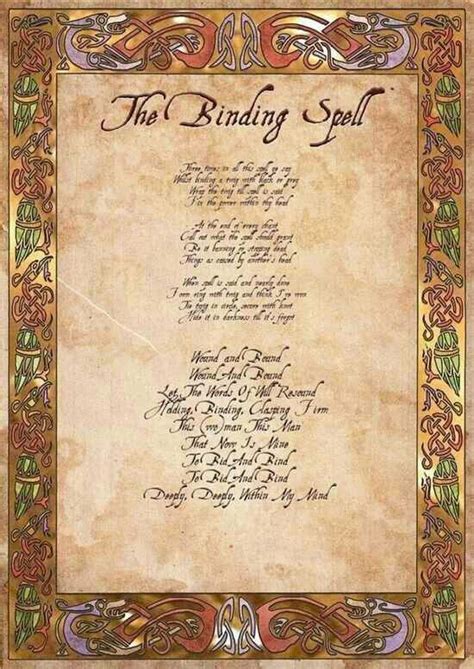 The Binding Spell
Three times in all this spell is say
Whilst binding a twig with black or grey
Wrap the twig till spell is said
Fix the power within thy head
At the end of every chant
Call out what the spell should grant
Be it banning or stoping dead
Things as caused by another's head
When spell is said and nearly done
Form ring with twig and think, I've won
Tie twig in circle, secure with knot
Hide it in darkness till it's forgot
Wound and Bound
Wound And Bound
Let, The Words Of Will Resound
Holding, Binding, Clasping Firm
This (wo)man This Man
That Now Is Mine
To Bid And Bind
To Bid And Bind
Deeply, Deeply, Within My Mind